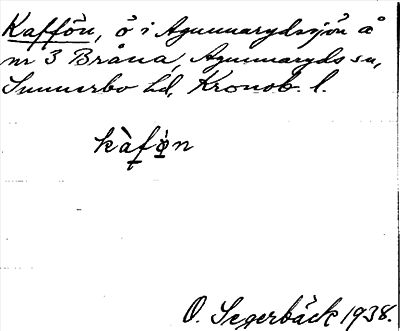 Kaffön, ö i Agunnarydssjön å
nr 3 Bråna, Agunnaryds sn,
Sunnerbo hd, Kronob. l.
kàfø̀n
O. Segerbäck 1938.